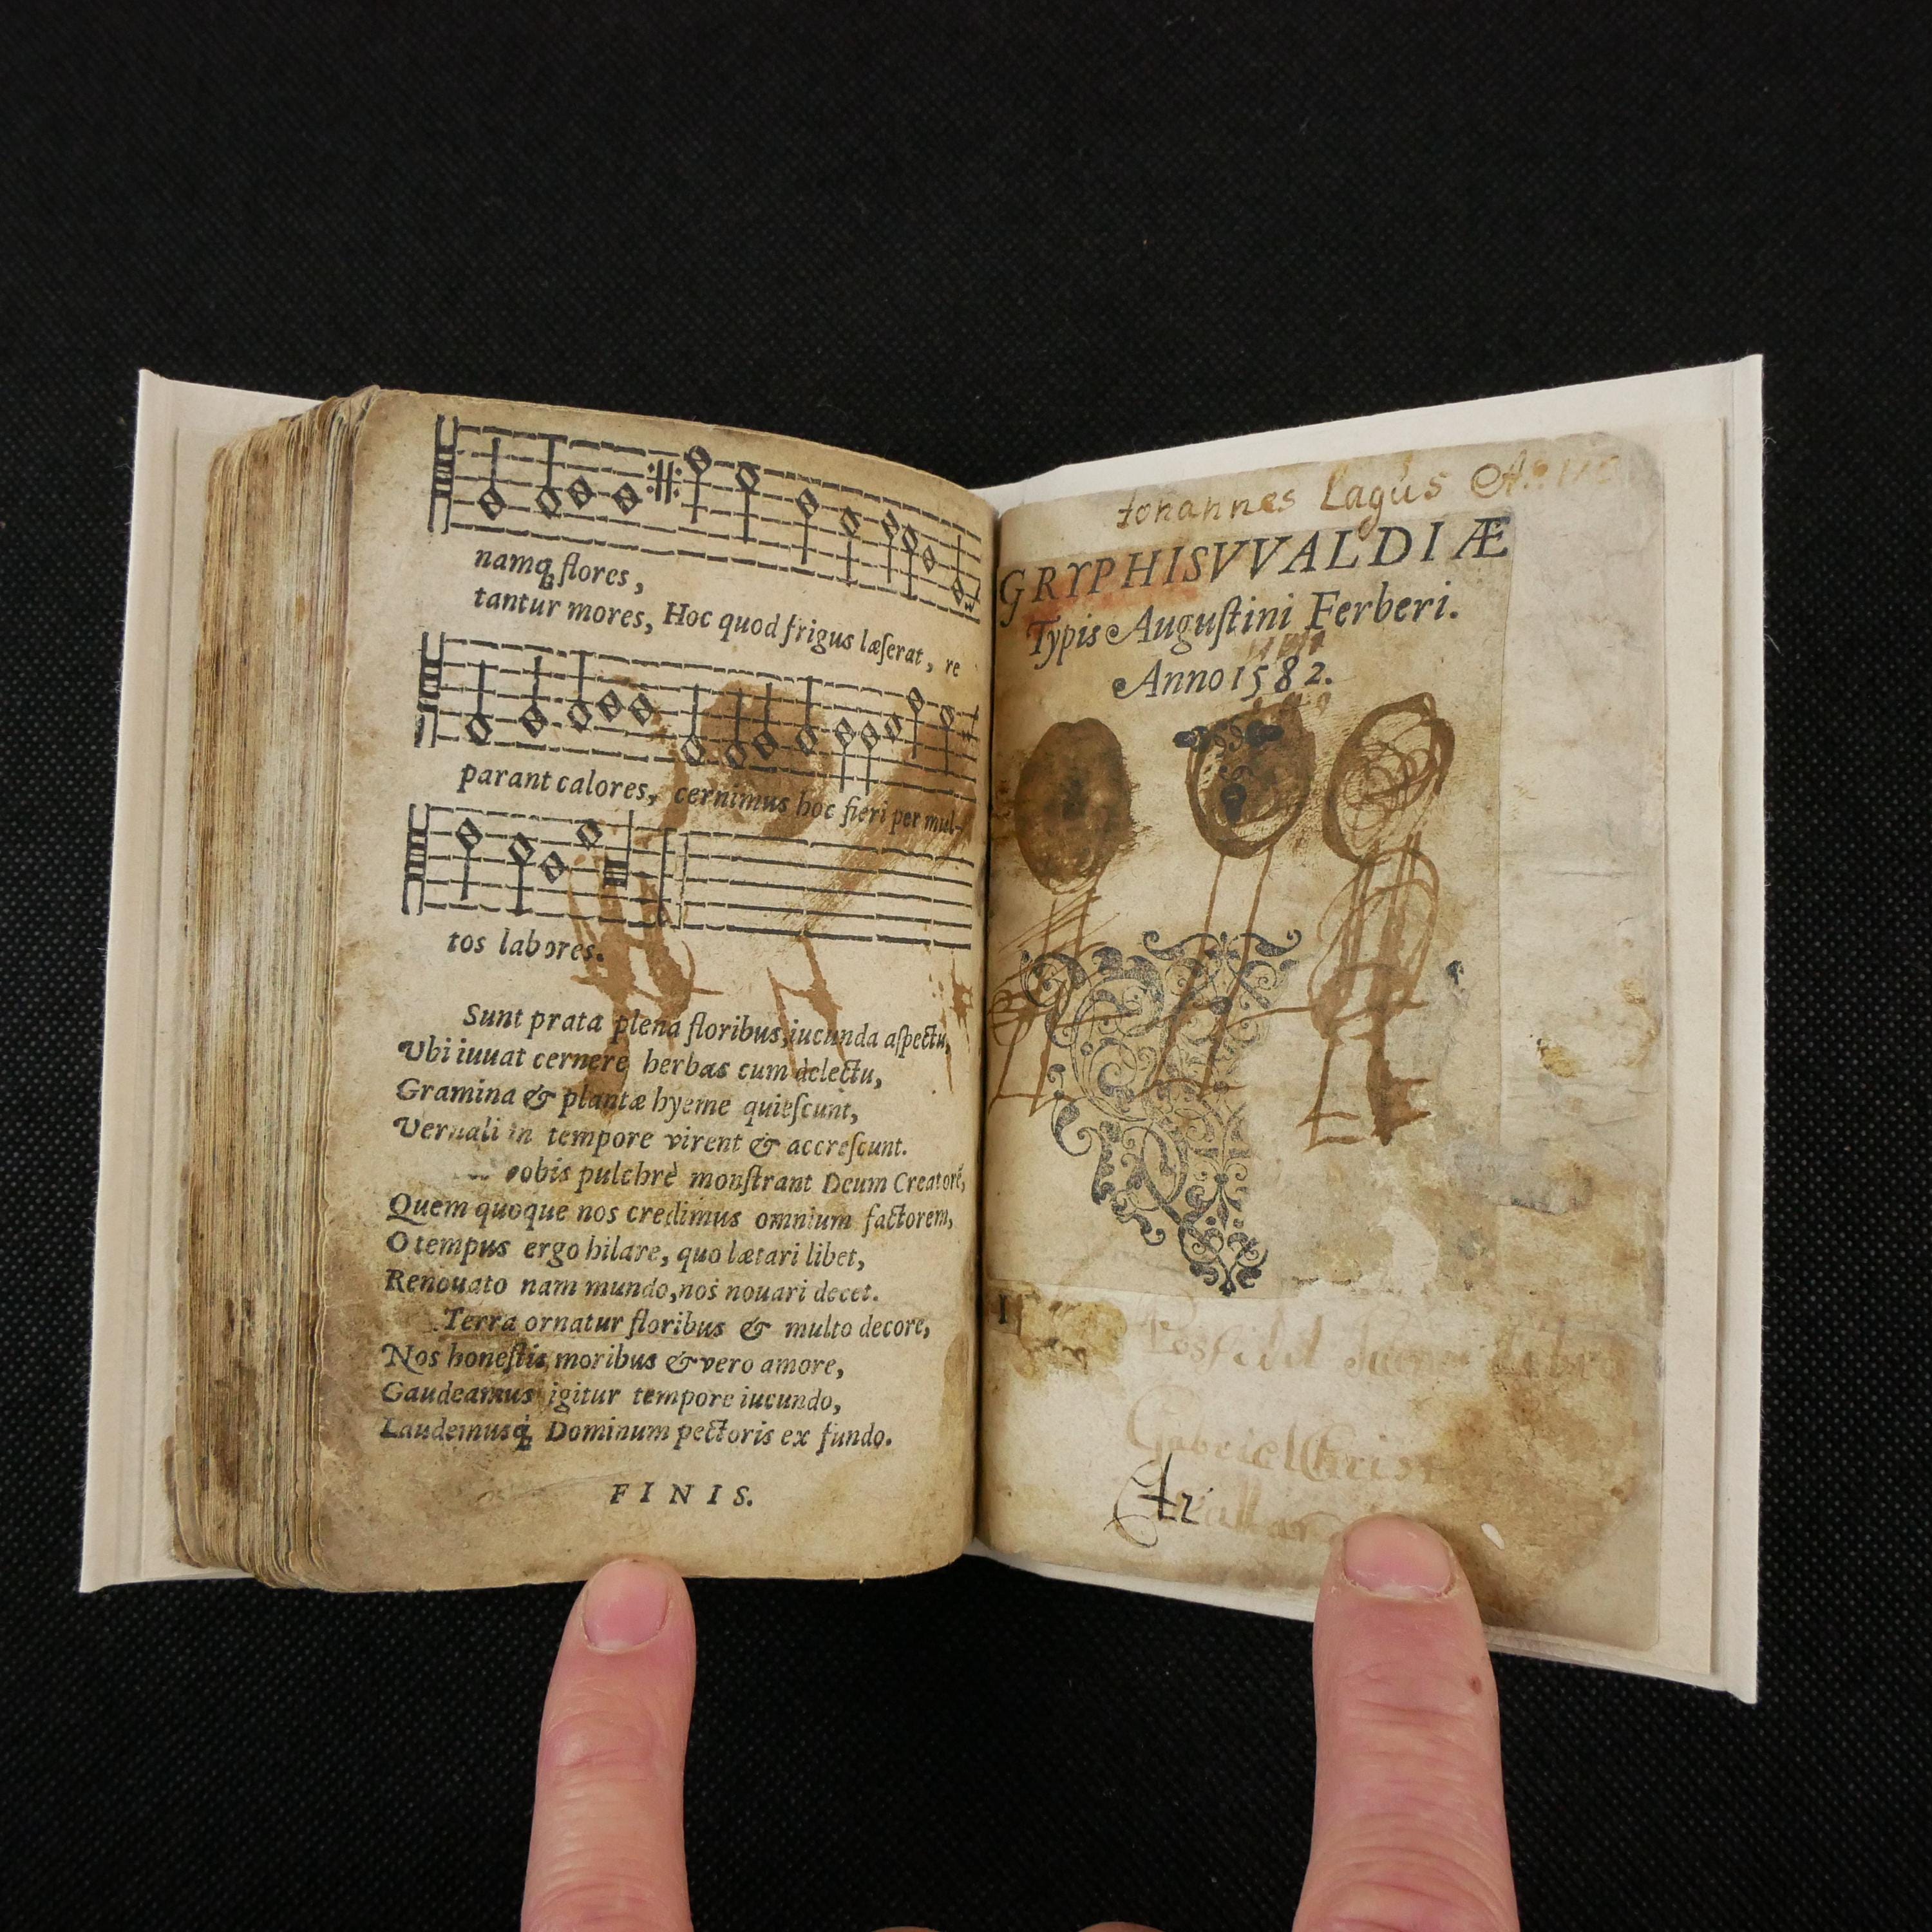 namq́; flores,
tantur mores, Hoc quod frigus læſerat, re
parant calores, cernimus hoc fieri per mul-
tos labores.
Sunt prata plena floribus, iucunda aſpectu,
Vbi iuuat cernere herbas cum delectu,
Gramina & plantæ hyeme quieſcunt,
Vernali in tempore virent & accreſcunt.
vobis pulchrè monſtrant Deum Creatorē,
Quem quoque nos credimus omnium factorem,
O tempus ergo hilare, quo lætari libet,
Renouato nam mundo, nos nouari decet.
Terra ornatur floribus & multo decore,
Nos honeſtis moribus & vero amore,
Gaudeamus igitur tempore iucundo,
Laudemusq́; Dominum pectoris ex fundo.
FINIS.
Johannes Lagus
GRYPHISVVALDIÆ
Typis Auguſtini Ferberi.
Anno 1582.
Gabriel Christ